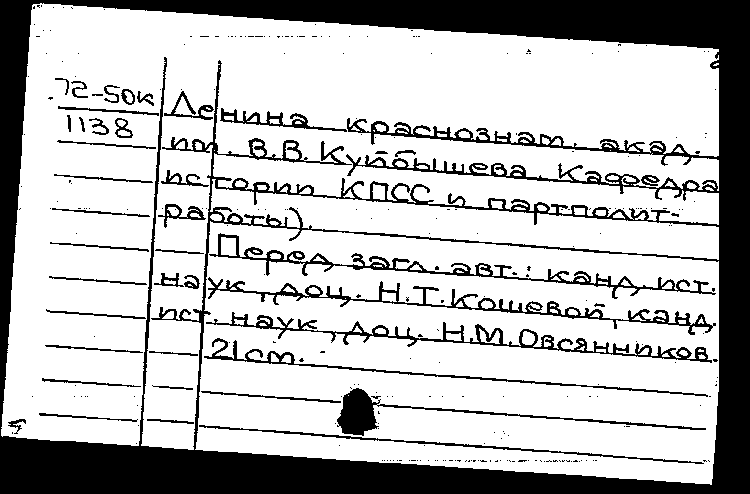 72-50к
1138
Ленина краснознам. акад.
им. В.В. Куйбышева. Кафедра
истории КПСС и партполит-
работы).
Перед загл. авт.: канд. ист.
наук, доц. Н.Т. Кошевой, канд.
ист. наук, доц. Н.М. Овсянников.
21 cm.